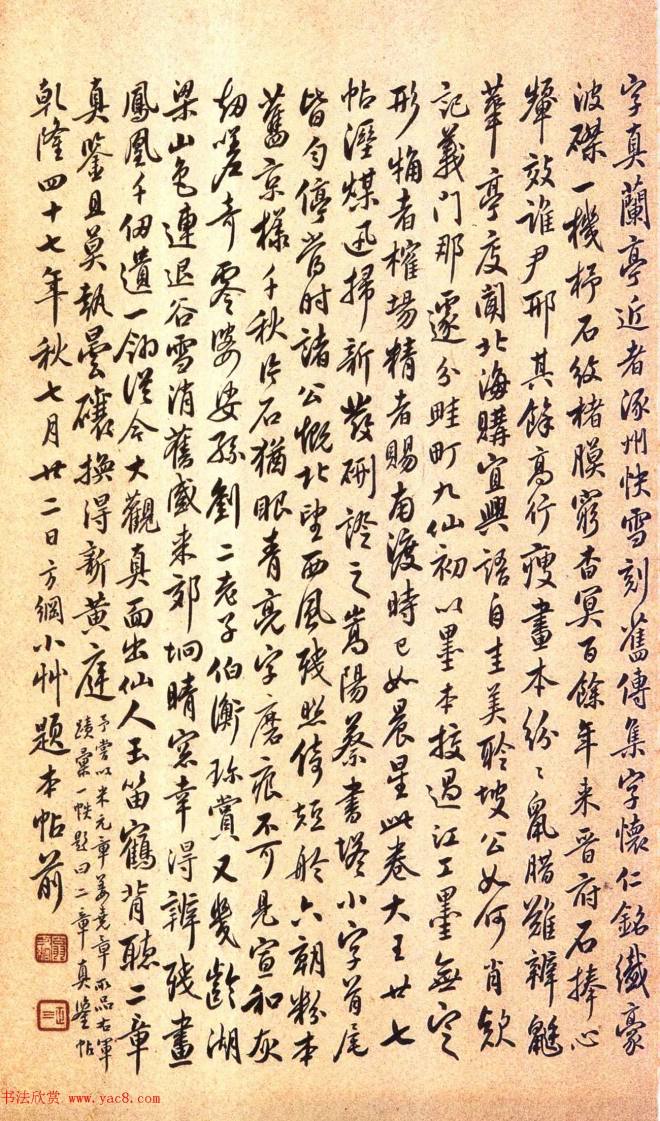 字真蘭亭近者涿州快雪刻舊傳集字懷仁銘纖豪
波磔一機杼石紋楮膜窮杳冥百餘年來晉府石捧心
顰效誰尹邢其餘高行瘦畫本紛々鼠腊難辨
華亭度閣北海購宜興語自圭美聆坡公如何肖欵
記義門那遽分畦町九仙初以墨本授過江工墨無定
形犕者榷場精者賜南渡時已如晨星此卷大王廿七
帖溼煤迅掃新發硎證之嵩陽蔡書塔小字首尾
皆勻停當時諸公慨北望西風殘照倚短舲六朝粉本
舊京樣千秋片石猶眼青亮字磨痕不可見宣和灰
劫嗟奇零婆娑孫劉二老子伯衡珍賞又幾齡湖
梁山色連退谷雪消舊感來郊坰晴窓幸得辨殘畫
鳳凰千仞遺一翎從今大觀真面出仙人玉笛鶴背聽二章
真鑒且莫執曇礦換得新黃庭 予嘗以米元章姜堯章所品右軍
蹟彙一帙題曰二章真鑒帖
乾隆四十七年秋七月廿二日方綱小艸題本帖前
书法欣赏 www.yac8.com